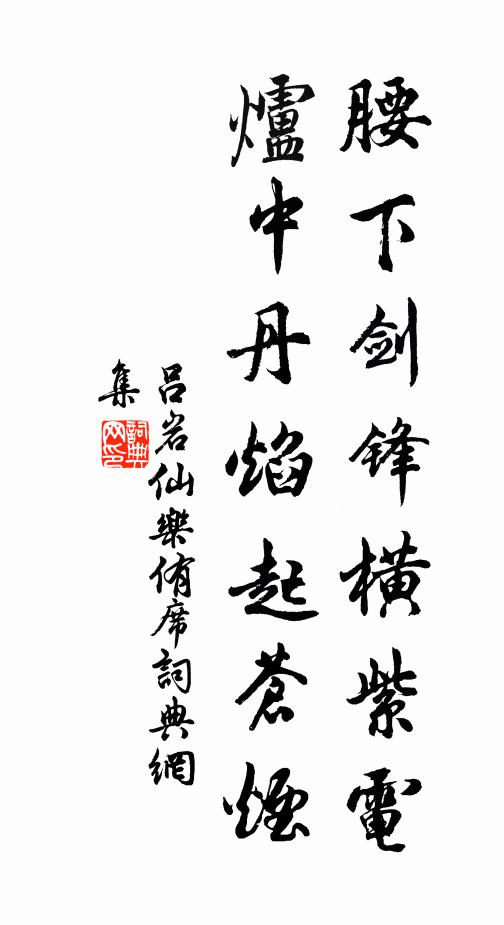 腰下剑锋橫紫電
爐中丹焰起蒼煙
呂岩仙樂侑席詞典網
集
詞典网印